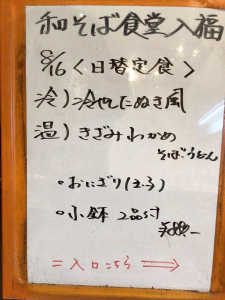 和そば食堂入福
8/16〈日替定食〉
冷)冷やしたぬき風
温)きざみわかめ
そばうどん
・おにぎり(2ヶ)
・小鉢 2品付
＝入口こちら⇒